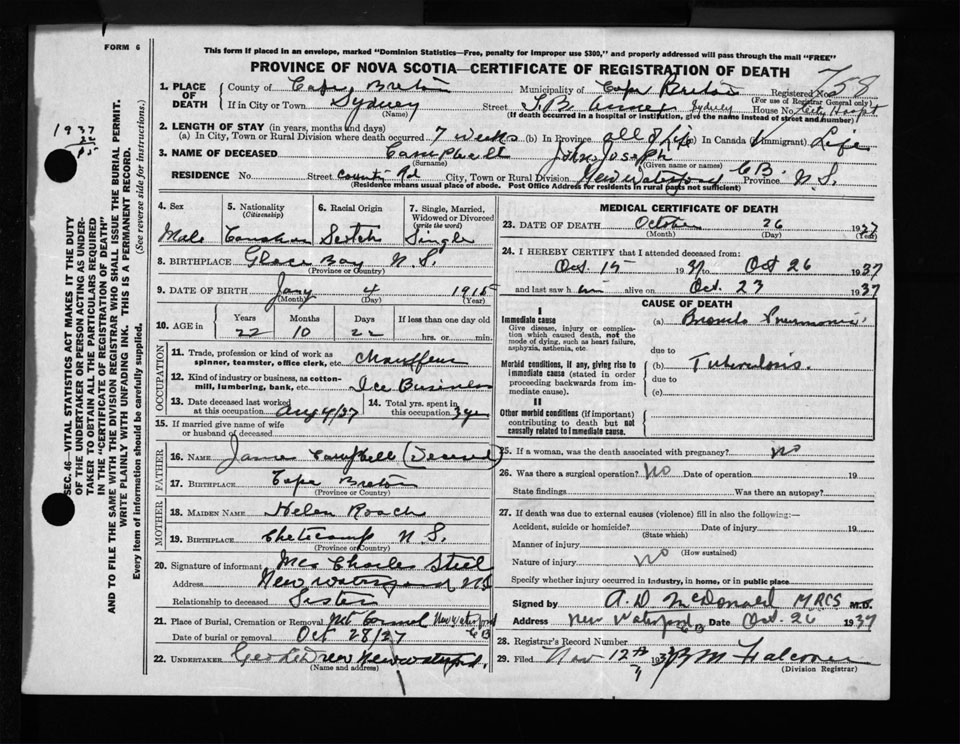 FORM 6
This form if placed in an envelope, marked "Dominion Statistics—Free, penalty for improper use $300," and properly addressed will pass through the mail "FREE"
PROVINCE OF NOVA SCOTIA—CERTIFICATE OF REGISTRATION OF DEATH
758
1. PLACE OF DEATH
County of Cape Breton Municipality of Cape Breton Registered No.
(For use of Registrar General only)
If in City or Town Sydney Street T.B. Annex Sydney House No. City Hospt
(Name) (If death occurred in a hospital or institution, give the name instead of street and number)
2. LENGTH OF STAY (in years, months and days)
(a) In City, Town or Rural Division where death occurred 7 weeks (b) In Province all of Life (c) In Canada (if immigrant) Life
3. NAME OF DECEASED Campbell John Joseph
(Surname) (Given name or names)
RESIDENCE No. Street County Rd City, Town or Rural Division New Waterford C B Province N.S.
(Residence means usual place of abode. Post Office Address for residents in rural parts not sufficient)
4. Sex Male
5. Nationality (Citizenship) Canadian
6. Racial Origin Scotch
7. Single, Married, Widowed or Divorced (write the word) Single
8. BIRTHPLACE Glace Bay N.S.
(Province or Country)
9. DATE OF BIRTH Jany 4 1915
(Month) (Day) (Year)
10. AGE in Years Months Days If less than one day old
22 10 22 hrs. or min.
OCCUPATION
11. Trade, profession or kind of work as spinner, teamster, office clerk, etc. Chauffeur
12. Kind of industry or business, as cotton-mill, lumbering, bank, etc. Ice Business
13. Date deceased last worked at this occupation Aug 4/37
14. Total yrs. spent in this occupation 3 yr
15. If married give name of wife or husband of deceased
FATHER
16. NAME James Campbell (Deceased)
17. BIRTHPLACE Cape Breton
(Province or Country)
MOTHER
18. MAIDEN NAME Helen Roach
19. BIRTHPLACE Chetecamp N.S.
(Province or Country)
20. Signature of informant Mrs Charles Steel
Address New Waterford NS
Relationship to deceased Sister
21. Place of Burial, Cremation or Removal Mt Carmel New Waterford C B
Date of burial or removal Oct 28/37
22. UNDERTAKER New Waterford.
(Name and address)
MEDICAL CERTIFICATE OF DEATH
23. DATE OF DEATH October 26 1937
(Month) (Day) (Year)
24. I HEREBY CERTIFY that I attended deceased from:
Oct. 15 1937 to Oct 26 1937
and last saw him alive on Oct. 23 1937
CAUSE OF DEATH
I
Immediate cause
Give disease, injury or complication which caused death, not the mode of dying, such as heart failure, asphyxia, asthenia, etc.
(a) Broncho Pneumonia
due to
Morbid conditions, if any, giving rise to immediate cause (stated in order proceeding backwards from immediate cause).
(b) Tuberculosis.
due to
(c)
II
Other morbid conditions (if important) contributing to death but not causally related to immediate cause.
25. If a woman, was the death associated with pregnancy? no
26. Was there a surgical operation? no Date of operation 19
State findings Was there an autopsy?
27. If death was due to external causes (violence) fill in also the following:—
Accident, suicide or homicide? Date of injury 19
(State which)
Manner of injury
(How sustained)
Nature of injury no
Specify whether injury occurred in industry, in home, or in public place
Signed by A. D. McDonald MRCS M.D.
Address New Waterford C B Date Oct. 26 1937
28. Registrar's Record Number
29. Filed Nov 12th 1937 Falconer
(Division Registrar)
SEC. 46—VITAL STATISTICS ACT MAKES IT THE DUTY
OF THE UNDERTAKER OR PERSON ACTING AS UNDER-
TAKER TO OBTAIN ALL THE PARTICULARS REQUIRED
IN THE "CERTIFICATE OF REGISTRATION OF DEATH"
AND TO FILE THE SAME WITH THE DIVISION REGISTRAR WHO SHALL ISSUE THE BURIAL PERMIT.
WRITE PLAINLY WITH UNFADING INK. THIS IS A PERMANENT RECORD.
Every item of information should be carefully supplied. (See reverse side for instructions.)
1937
22